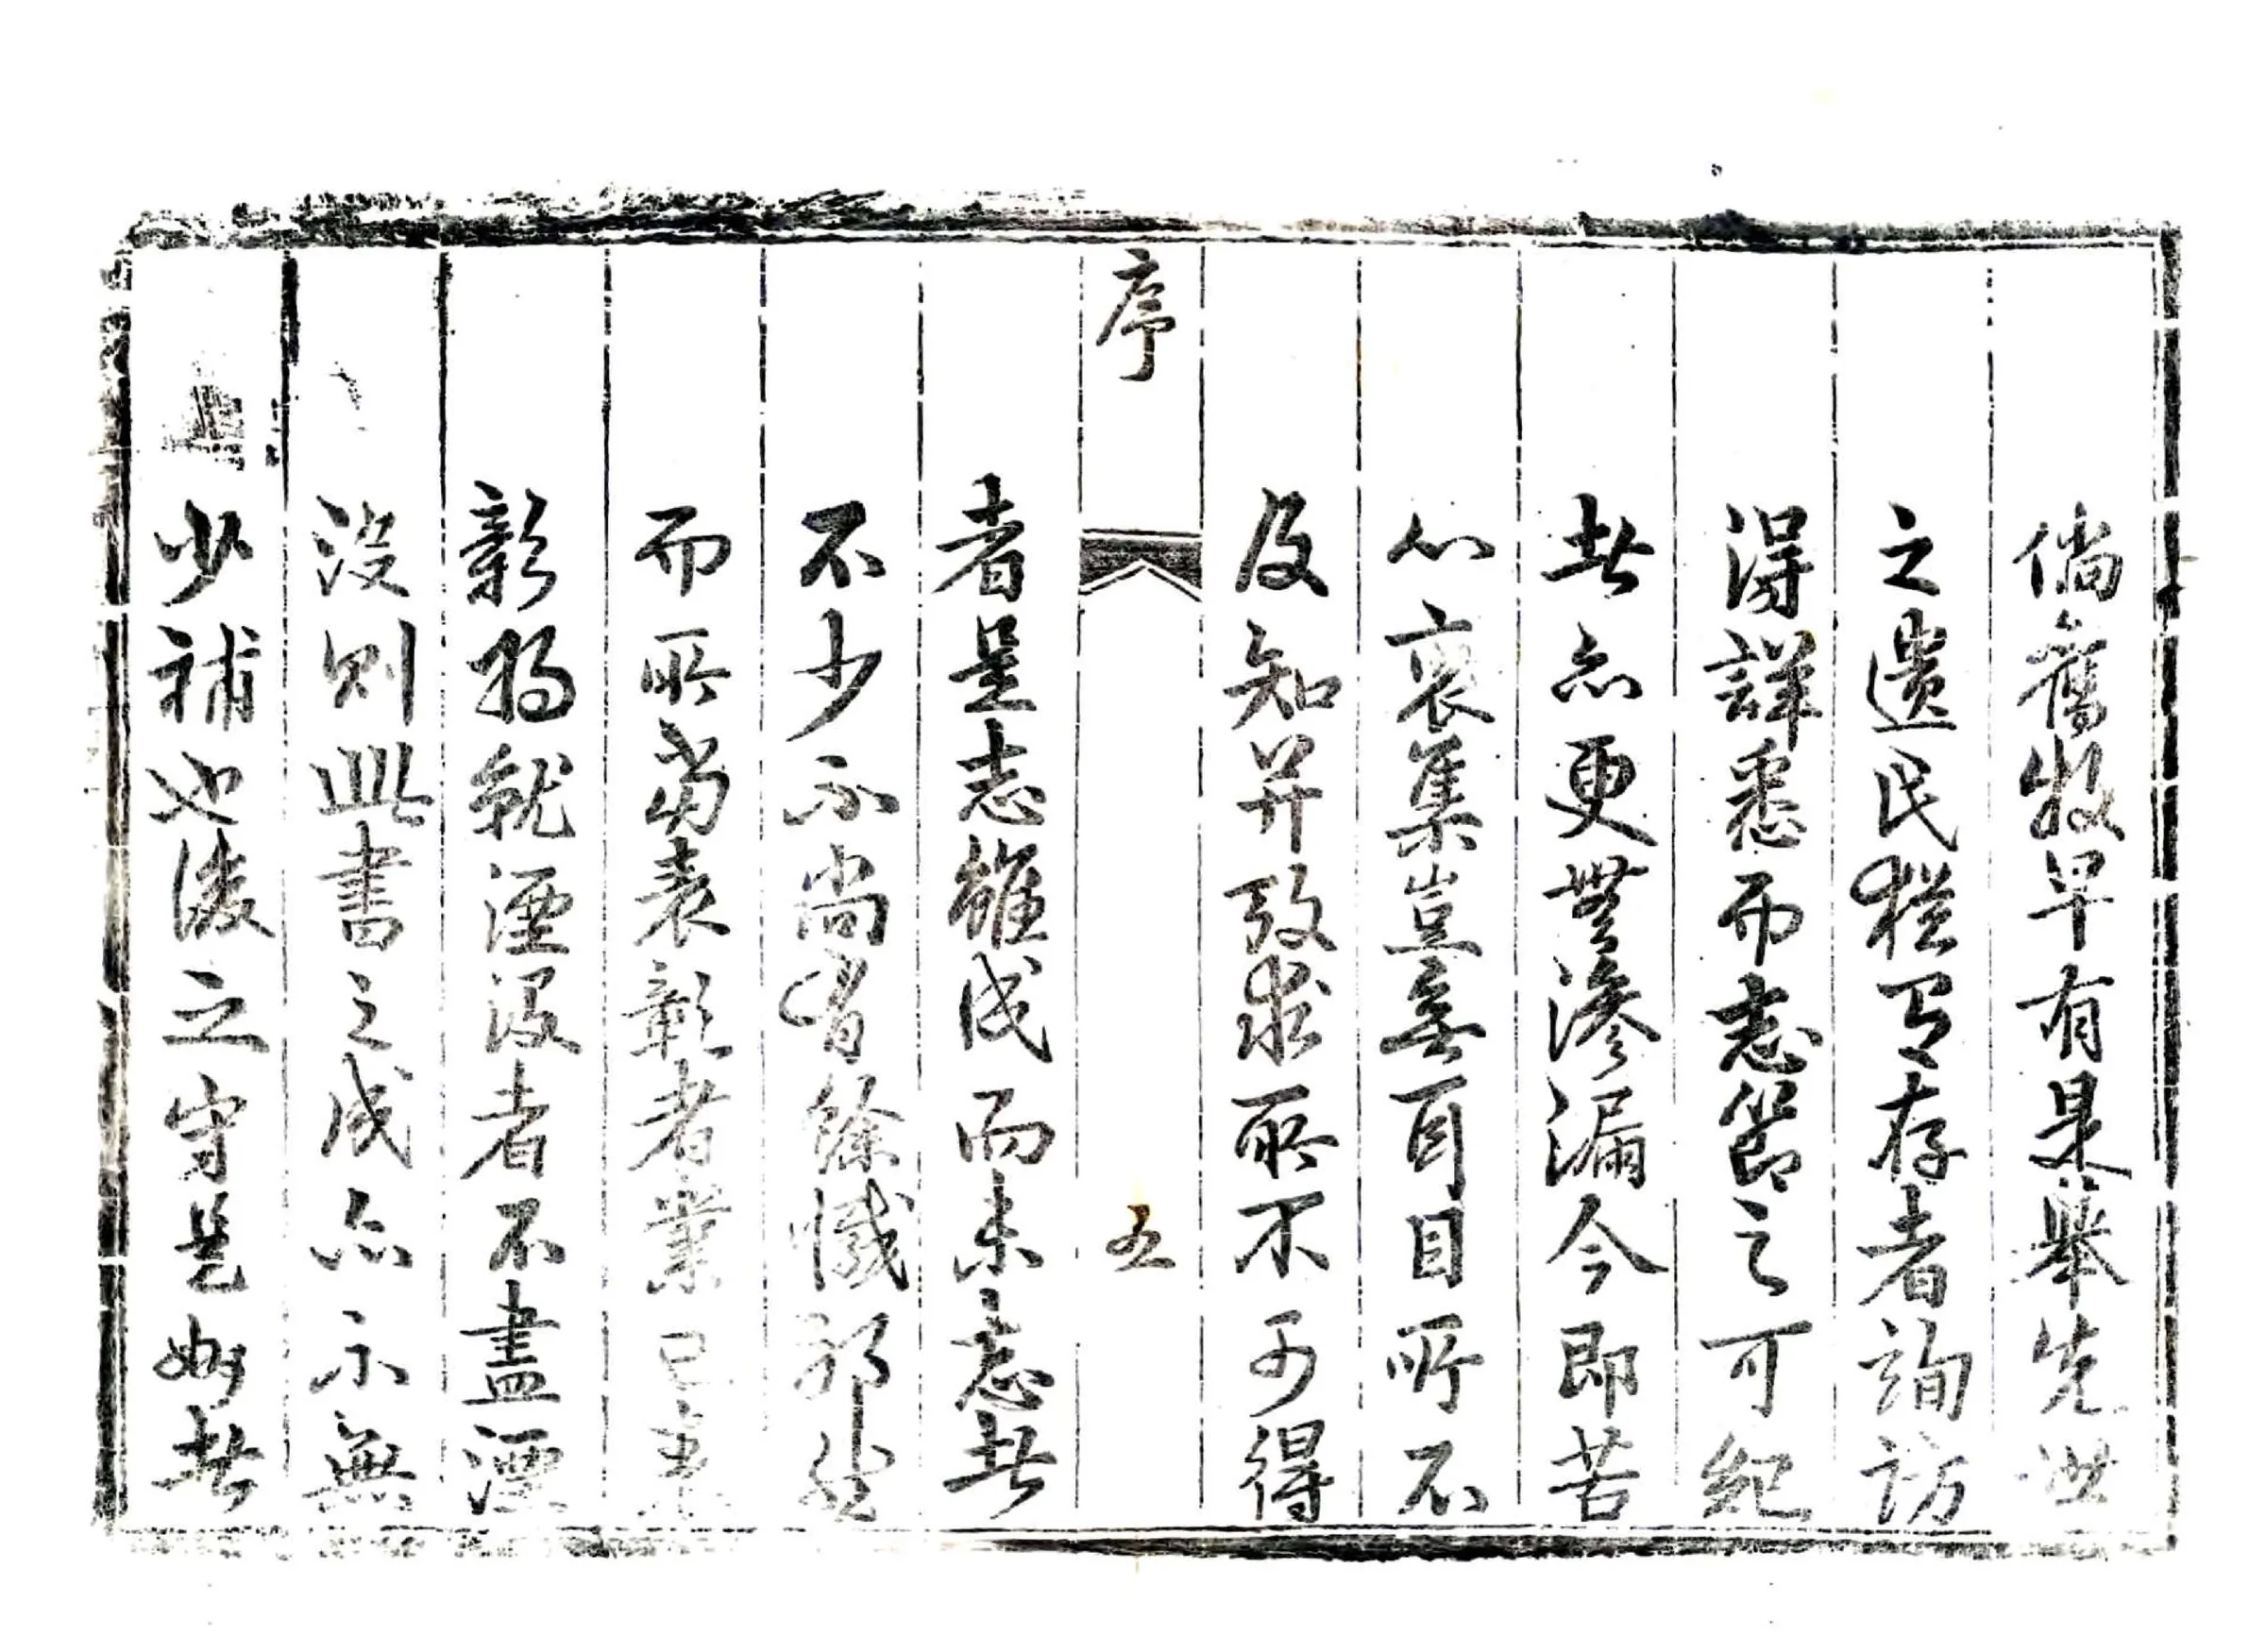 倘舊牧早有是舉先世
之遺民猶有存者詢訪
得詳悉而志節之可紀
者亦更無滲漏今即苦
心裒集豈無耳目所不
及知并攷求所不可得
序
五
者是志雖成而未者
不少不尚有餘憾耶然
而所當表彰者業已表
彰將就湮沒者不盡湮
沒則此書之成亦不無
少補也後之守是邦者